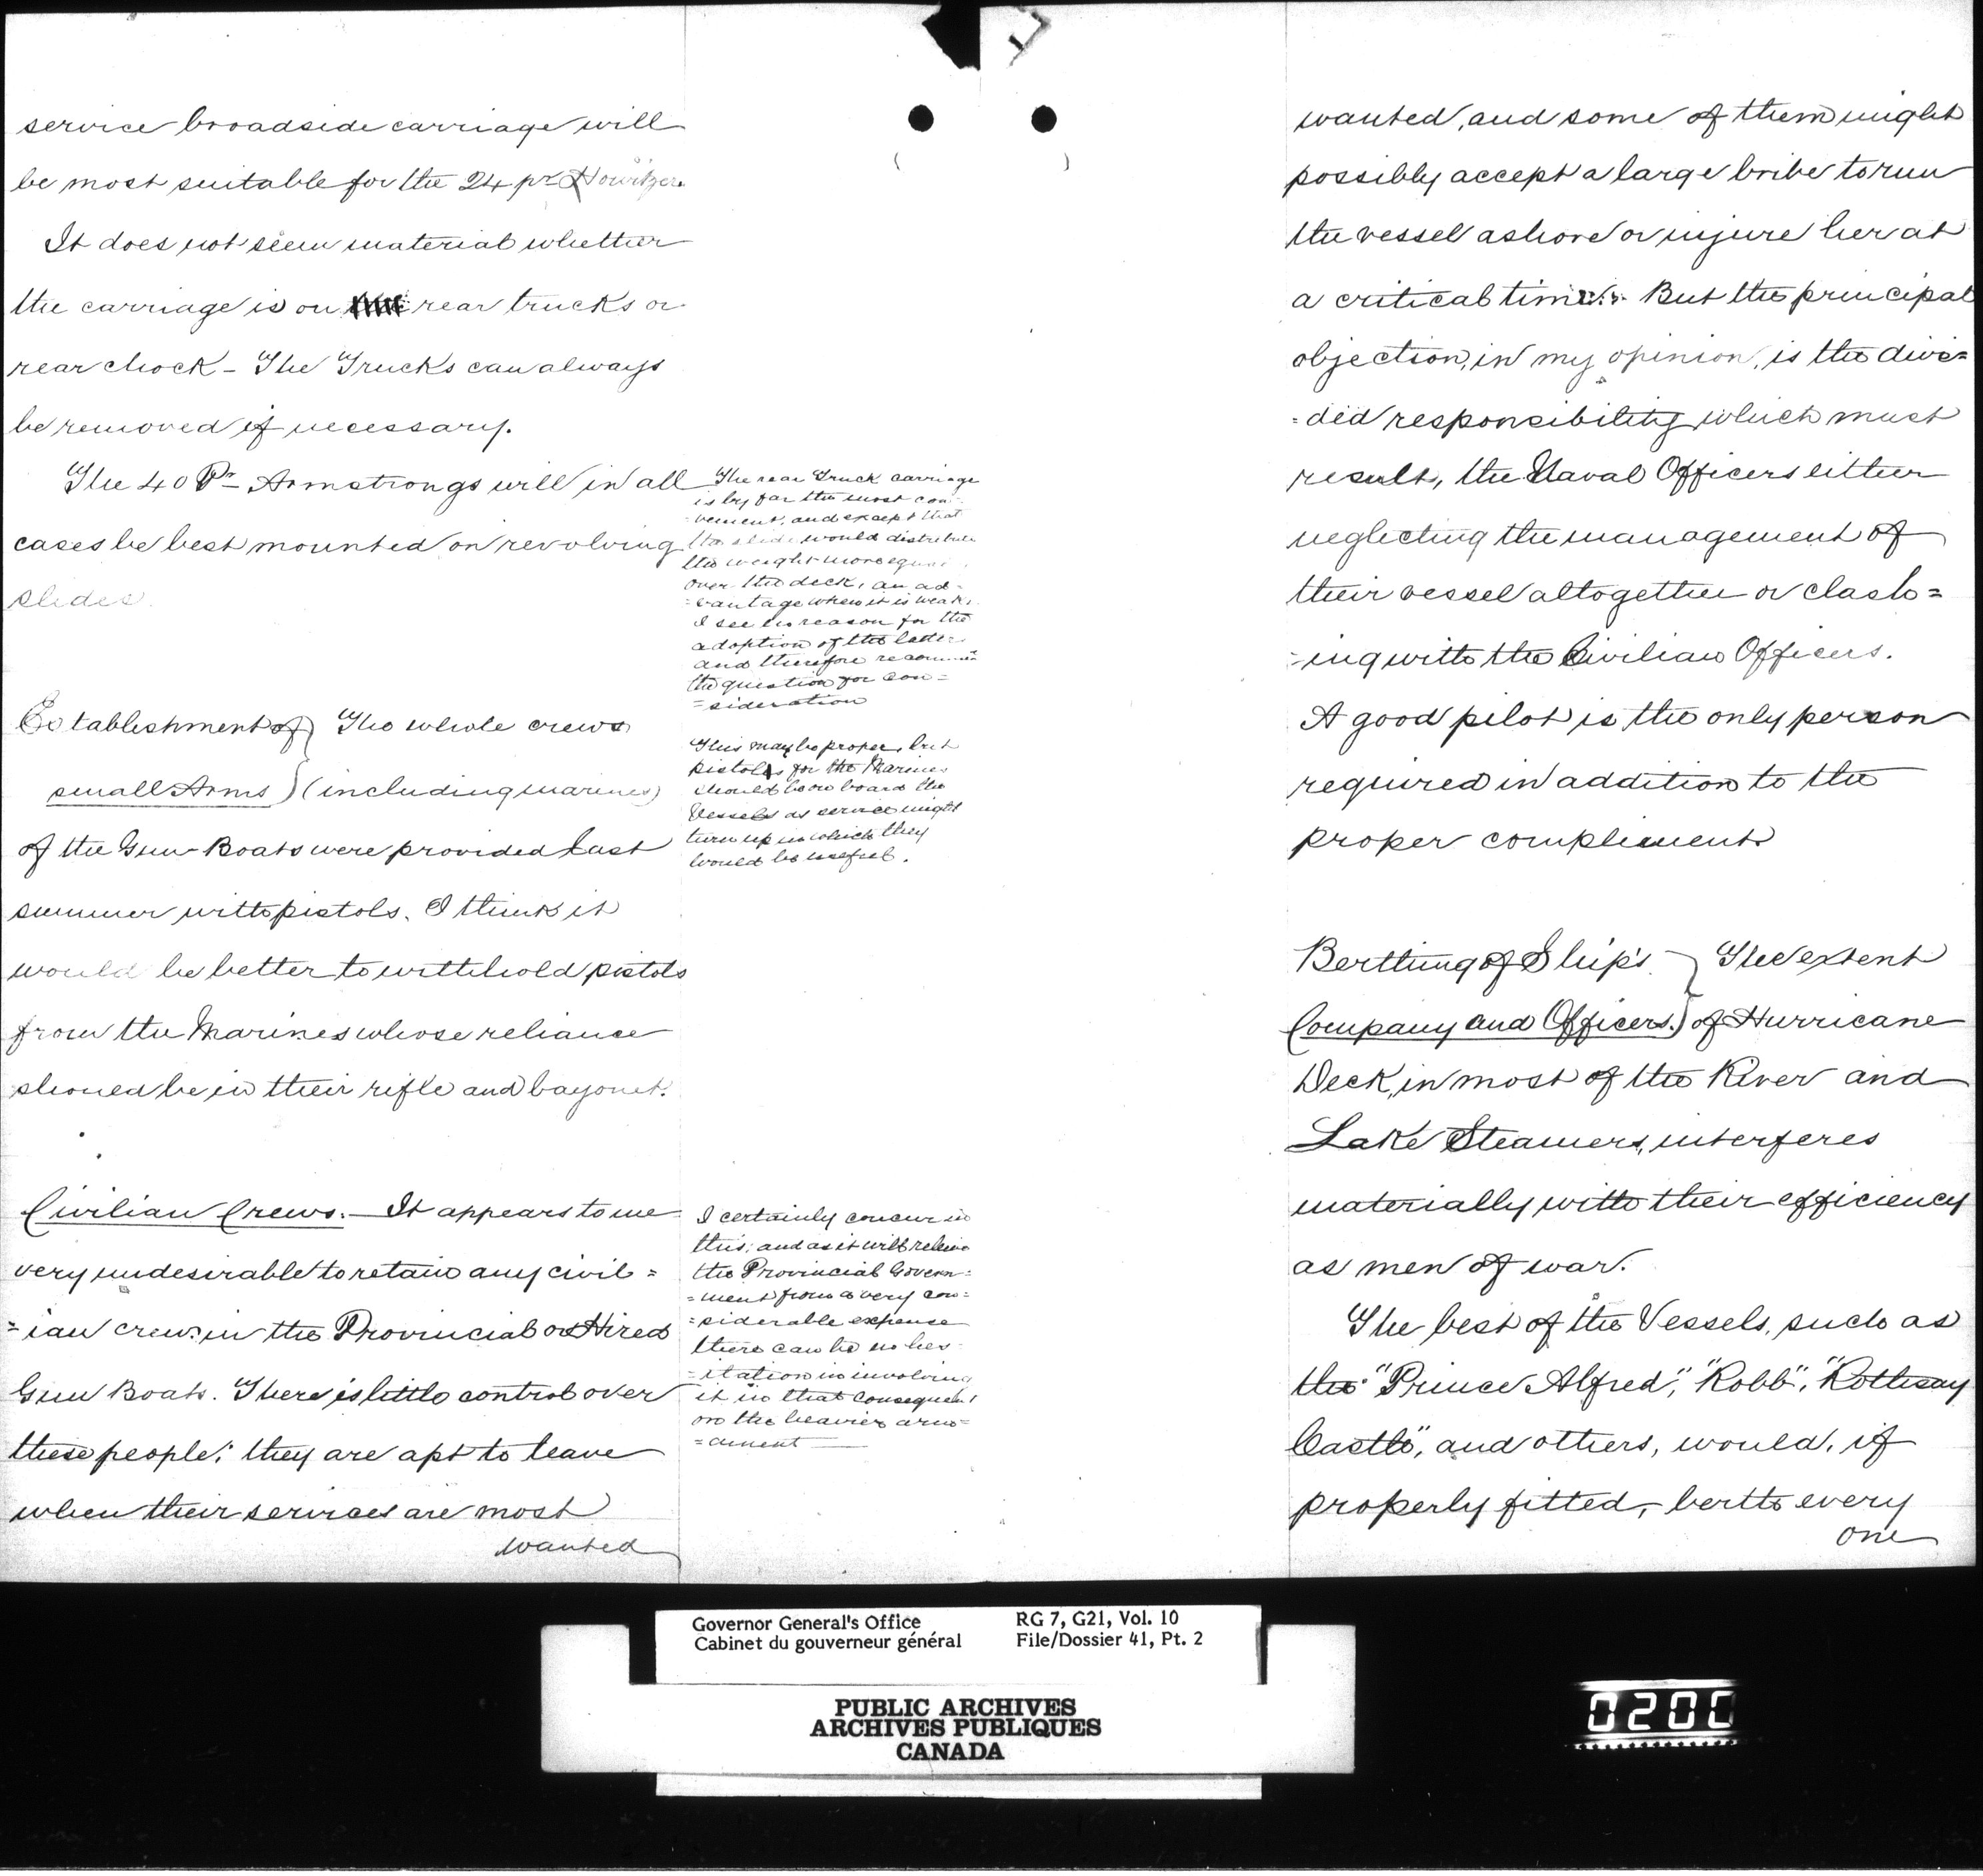 service broadside carriage will
be most suitable for the 24 pr Howitzers
It does not seem material whether
the carriage is on rear trucks or
rear chock - The Trucks can always
be removed if necessary.
The 40 Pr Armstrongs will in all
cases be best mounted on revolving
slides.
Establishment of } The whole crews
small Arms } (including marines)
of the Gun-Boats were provided last
summer with pistols. I think it
would be better to withhold pistols
from the Marines whose reliance
should be in their rifle and bayonet.
Civilian Crews. - It appears to me
very undesirable to retain any civil=
=ian crew in the Provincial or Hired
Gun Boats. There is little control over
these people; they are apt to leave
when their services are most
wanted
The rear Truck carriage
is by far the most con-
venient, and except that
the slide would distribute
the weight more equal
over the deck, an ad-
=vantage when it is weak,
I see no reason for the
adoption of the latter
and therefore recommen
the question for con=
=sideration
This may be proper, but
pistols for the Marines
should be on board the
Vessels as service might
turn up in which they
would be useful.
I certainly concur in
this; and as it will relieve
the Provincial Govern=
=ment from a very con=
=siderable expense
there can be no hes-
=itation in involving
it in that consequent
on the heavier arm=
=ament
wanted, and some of them might
possibly accept a large bribe to run
the vessel ashore or injure her at
a critical time. But the principal
objection, in my opinion, is the divi=
=ded responsibility which must
result, the Naval Officers either
neglecting the management of
their vessel altogether or clash=
=ing with the Civilian Officers.
A good pilot is the only person
required in addition to the
proper compliment
Berthing of Ship's } The extent
Company and Officers. } of Hurricane
Deck, in most of the River and
Lake Steamers, interferes
materially with their efficiency
as men of war.
The best of the Vessels, such as
the "Prince Alfred", "Robb", "Rothesay
Castle", and others, would, if
properly fitted, berth every
one
Governor General's Office
Cabinet du gouverneur général
RG 7, G21, Vol. 10
File/Dossier 41, Pt. 2
PUBLIC ARCHIVES
ARCHIVES PUBLIQUES
CANADA
0200